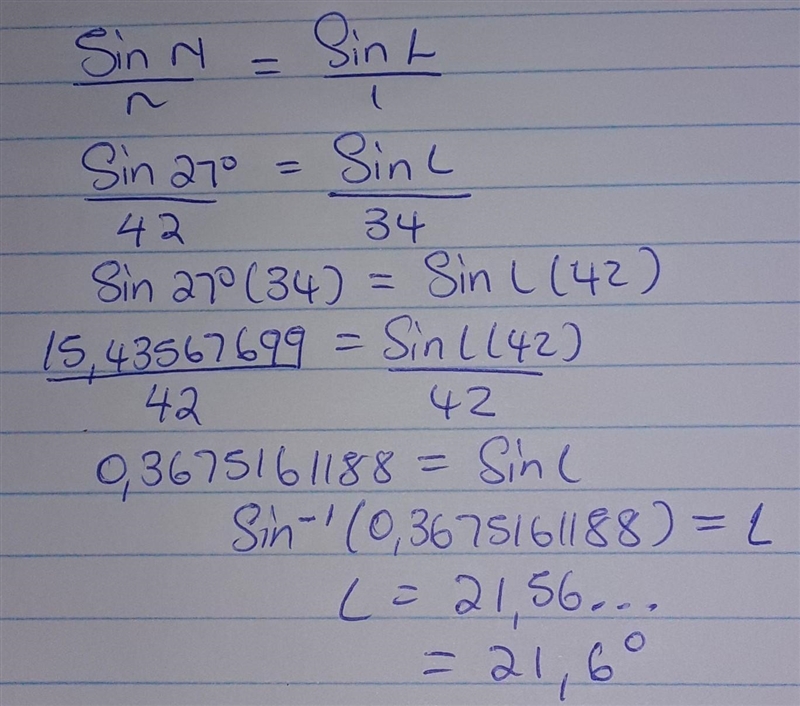 Sin N = Sin L
n l
Sin 27° = Sin L
42 34
Sin 27°(34) = Sin L (42)
15,43567699 = Sin L(42)
42 42
0,3675161188 = Sin L
Sin⁻¹(0,3675161188) = L
L = 21,56...
= 21,6°